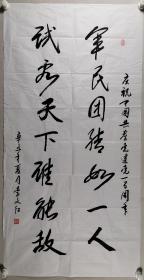 庆祝中国共产党建党一百周年
军民团结如一人
试看天下谁能敌
辛丑年夏月李文红